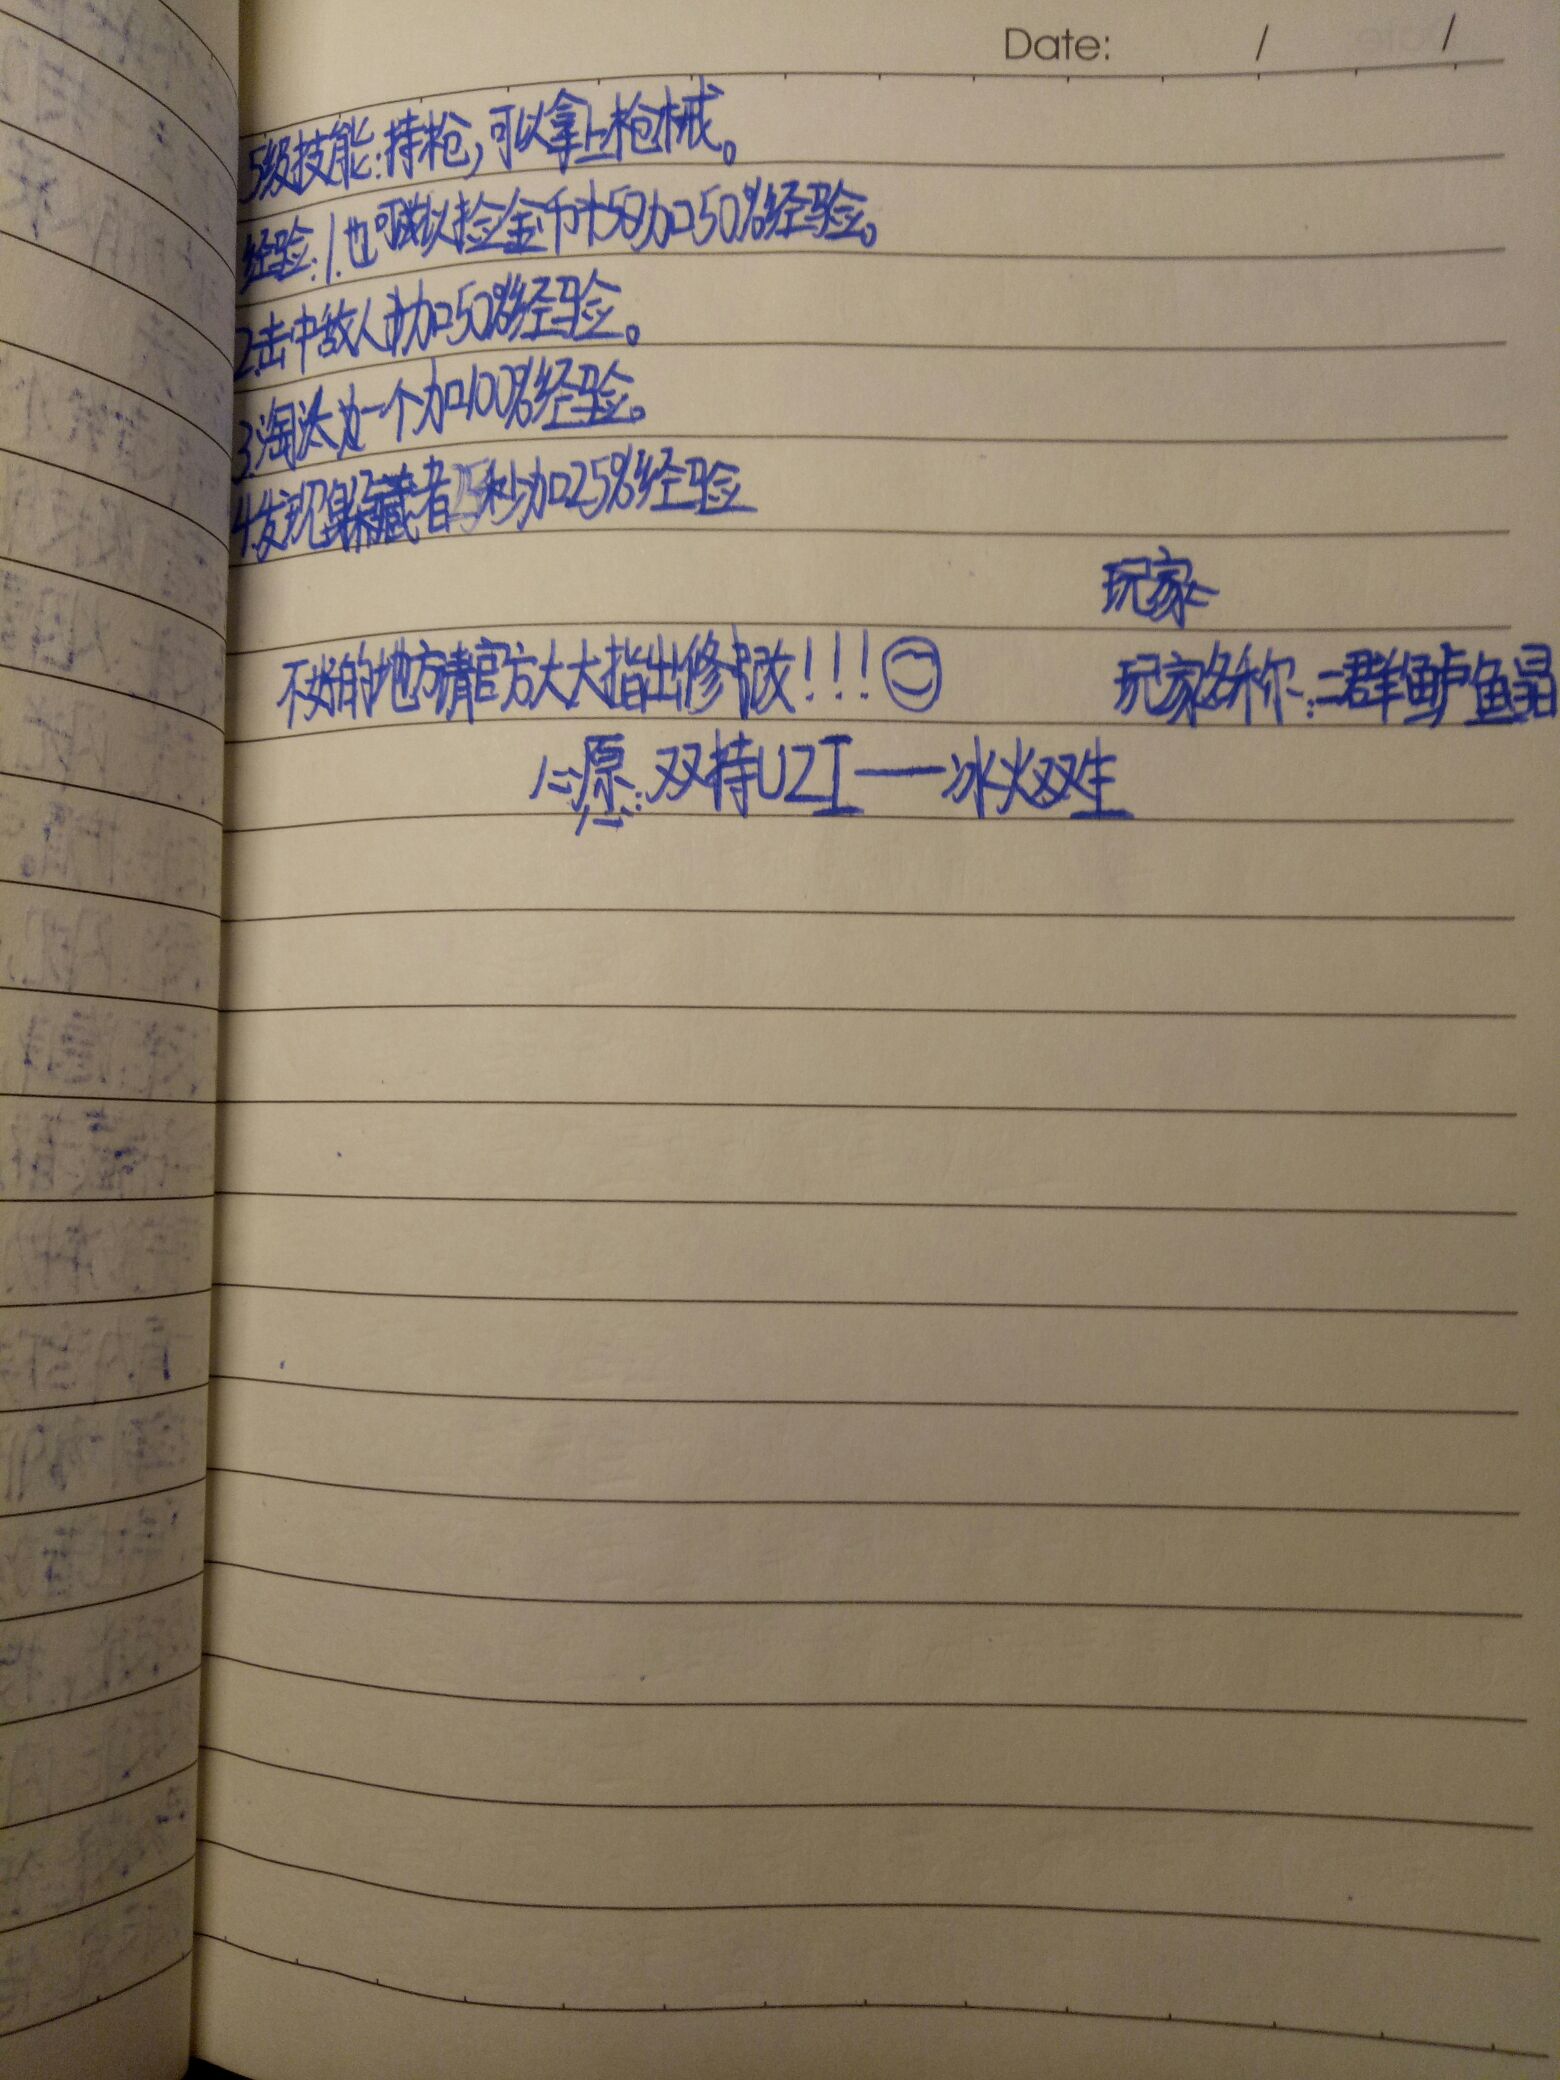 Date: / /
5级技能:持枪,可以拿上枪械。
经验:1.也可以捡金币+50加50%经验。
2.击中敌人加50%经验。
3.淘汰一个加100%经验。
4.发现躲藏者15秒加25%经验
玩家:
不好的地方请官方大大指出修改!!!
玩家名称:二群鲈鱼晶
心愿:双持UZI——冰火双生